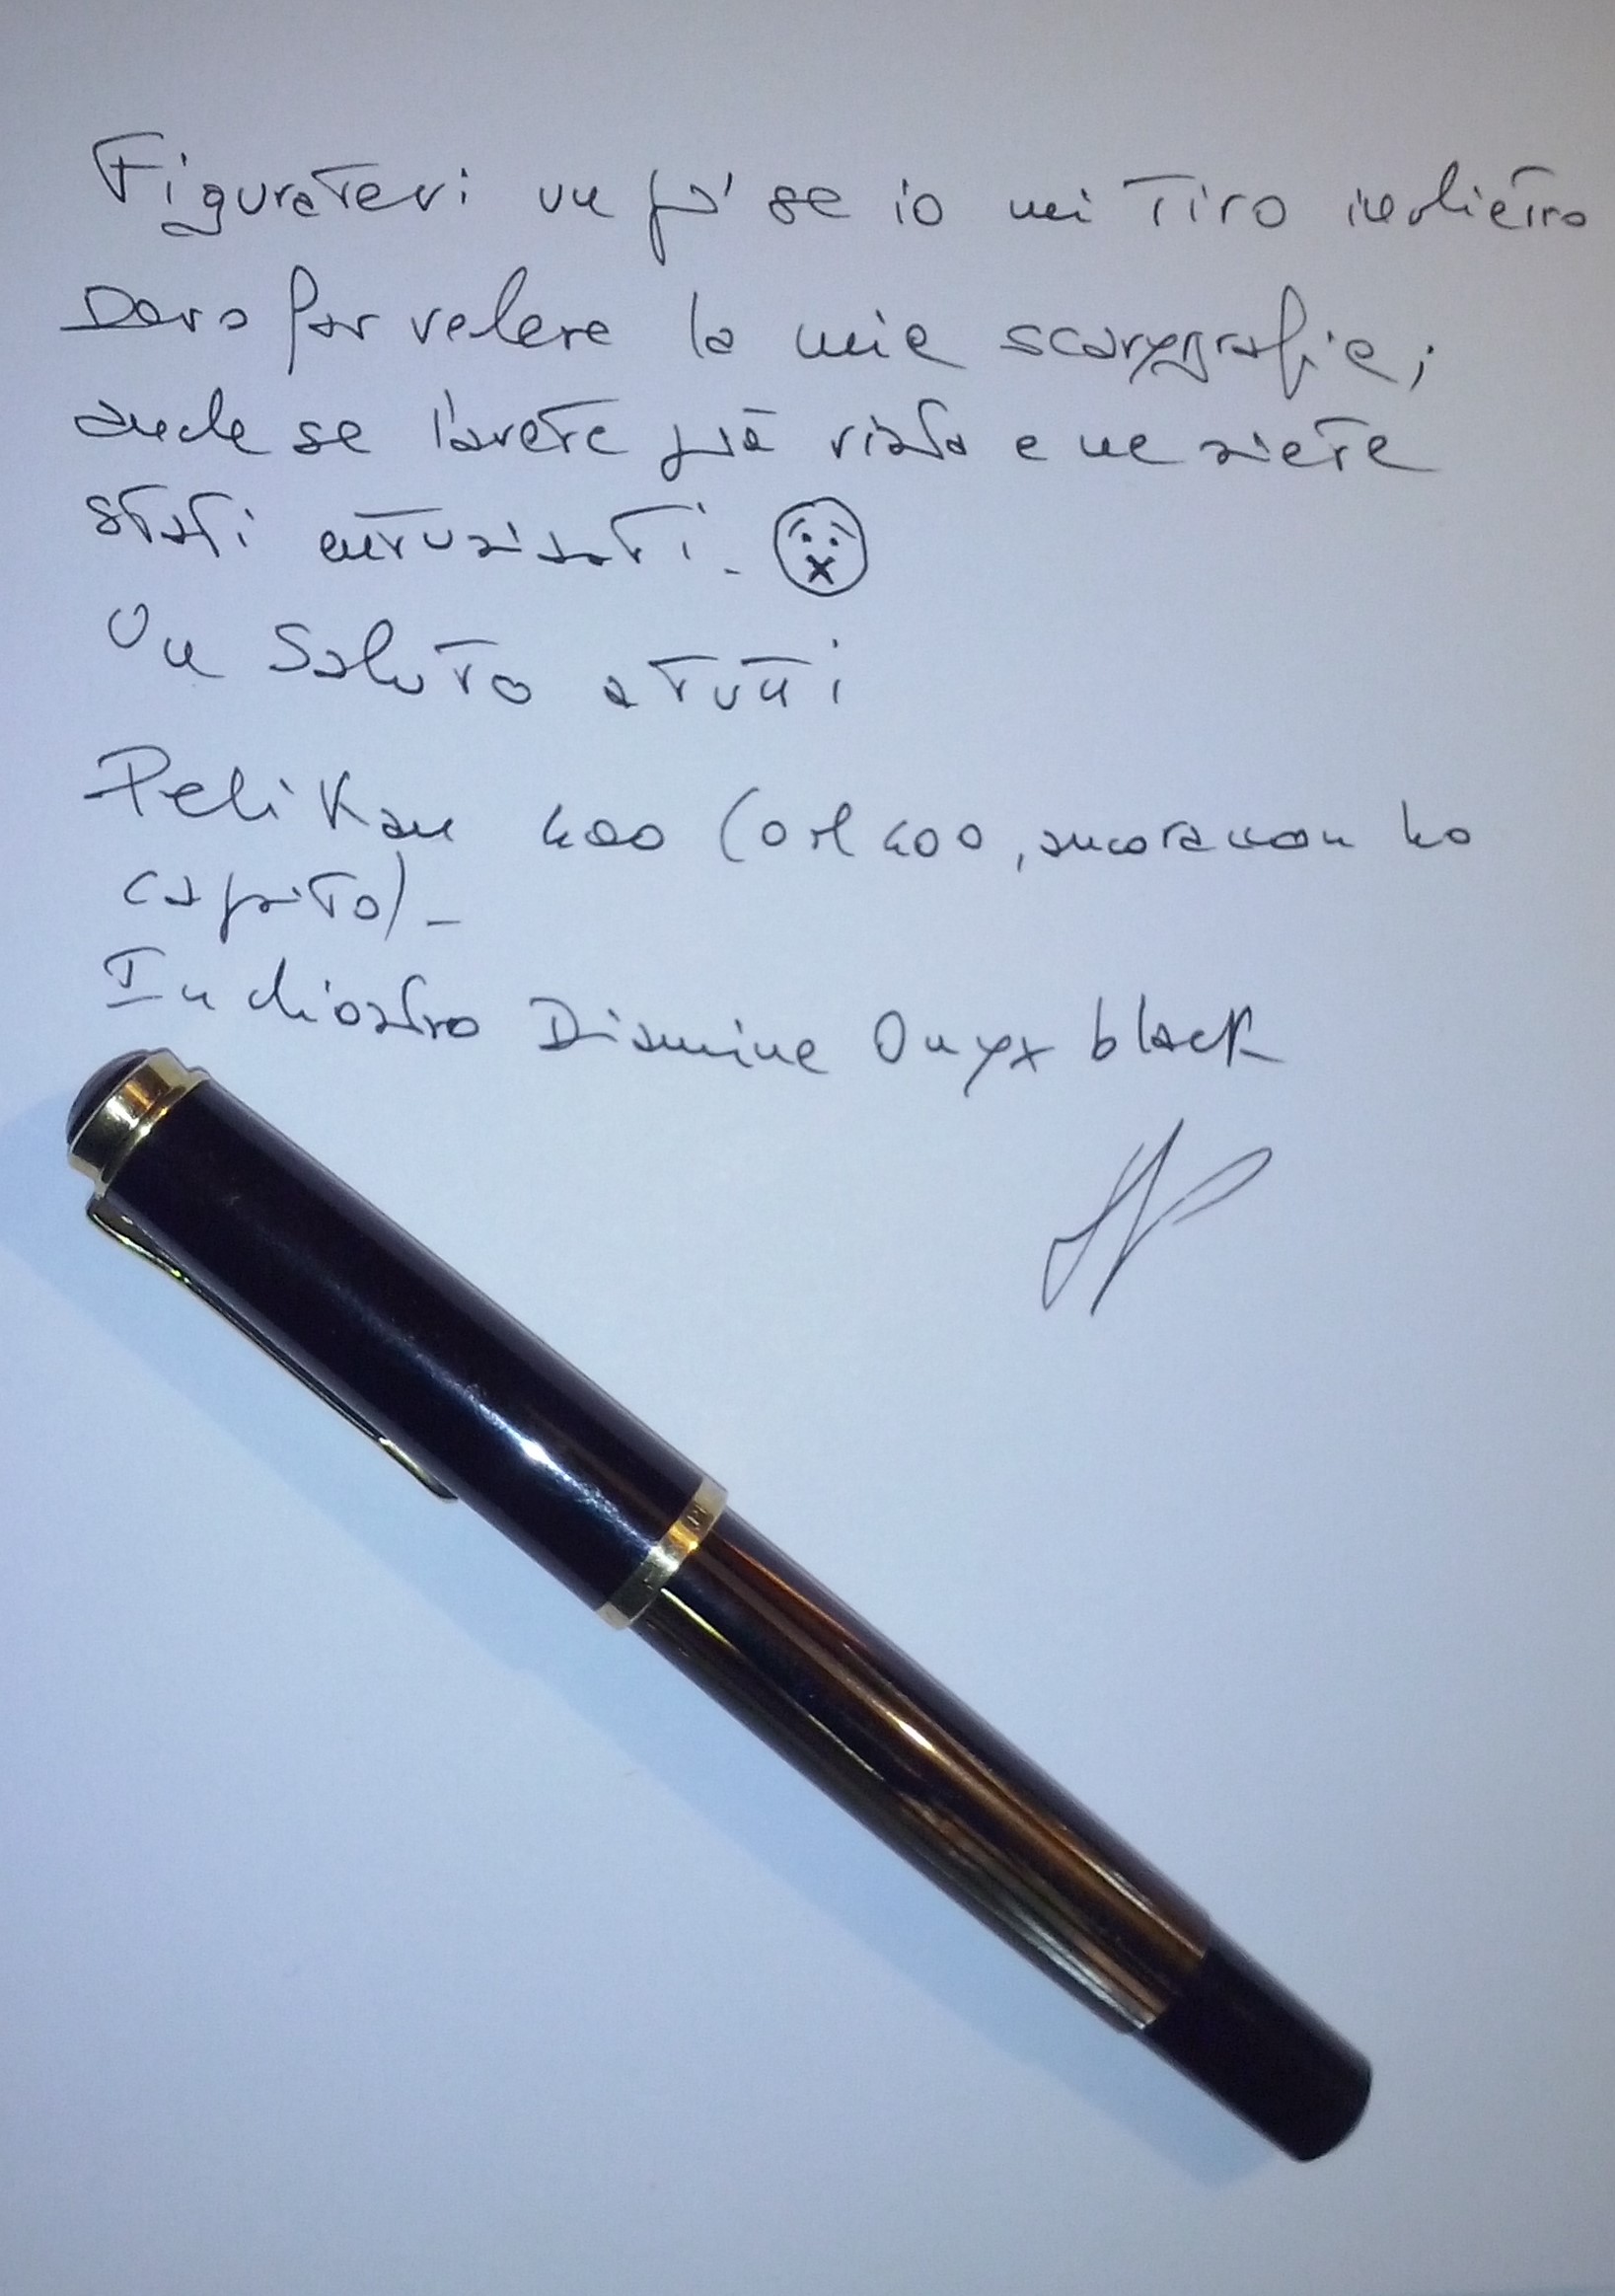 Figuratevi un po' se io mi tiro indietro
Devo far vedere la mia scarygrafia;
anche se l'avete già vista e ne siete
stati entusiasti.
Un Saluto a tutti
Pelikan 400 (o M400, ancora non ho
capito)-
Inchiostro Diamine Onyx black